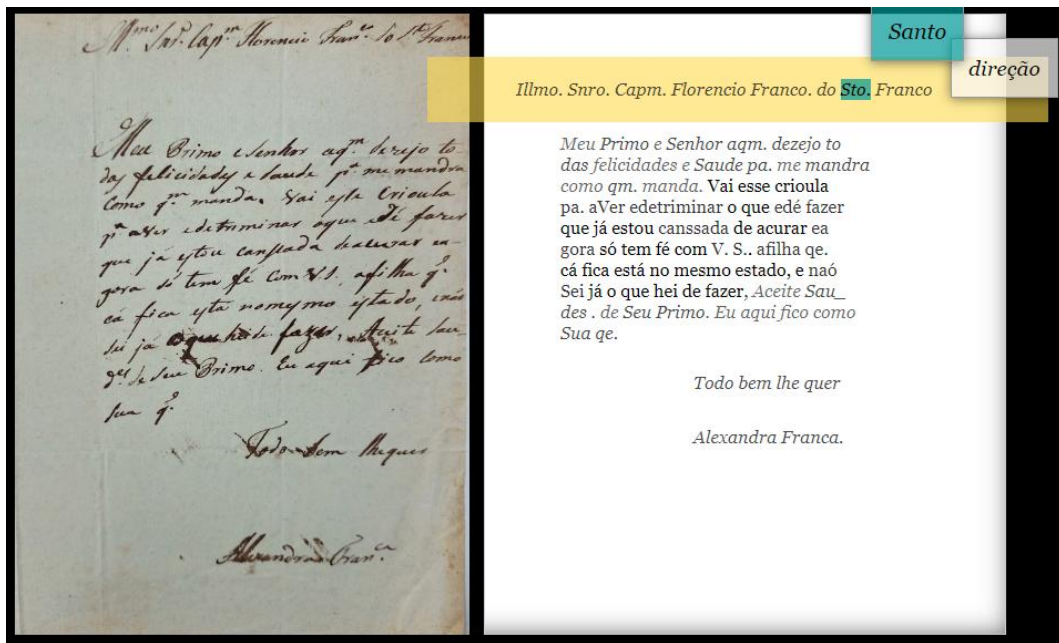 Illmo. Snr. Capm. Florencio Franco. do Sto. Franco
Meu Primo e Senhor aqm. dezejo to
das felicidades e Saude pa. me mandra
como qm. manda. Vai esta Crioula
pa. aVer edetriminar oque edé fazer
que já estou canssada deacurar ea-
gora só tem fé com V.S. afilha qe.
cá fica esta nomesmo estado, enaó
sei já oque hei de fazer, Aceite Sau_
des. de Seu Primo. Eu aqui fico como
sua qe.
Todo bem lhequer
Alexandra Franca.
Santo
direção
Illmo. Snro. Capm. Florencio Franco. do Sto. Franco
Meu Primo e Senhor aqm. dezejo to
das felicidades e Saude pa. me mandra
como qm. manda. Vai esse crioula
pa. aVer edetriminar o que edé fazer
que já estou canssada de acurar ea
gora só tem fé com V. S.. afilha qe.
cá fica está no mesmo estado, e naó
Sei já o que hei de fazer, Aceite Sau_
des . de Seu Primo. Eu aqui fico como
Sua qe.
Todo bem lhe quer
Alexandra Franca.